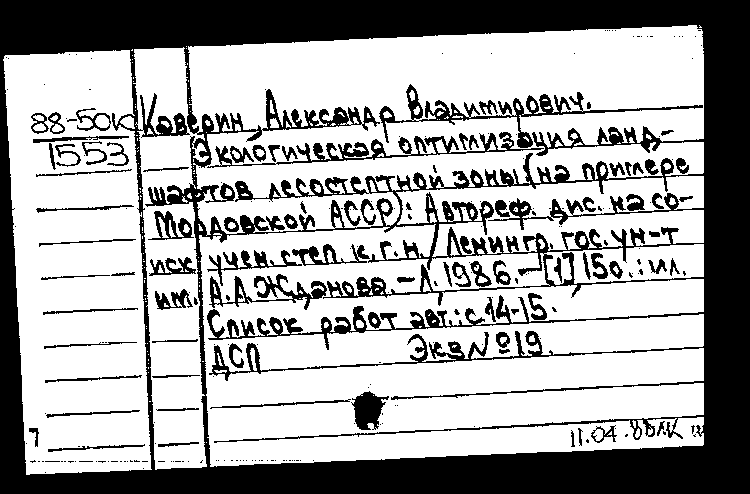 88-50к
1553
Каверин, Александр Владимирович.
Экологическая оптимизация ланд-
шафтов лесостепной зоны (на примере
Мордовской АССР): Автореф. дис. на со-
иск. учен. степ. к.г.н. / Ленингр. гос. ун-т
им. А.А. Жданова. - Л. 1986. - [1] 15с. : ил.
Список работ авт.: с. 14-15.
ДСП Экз № 19.
7
11.04.88